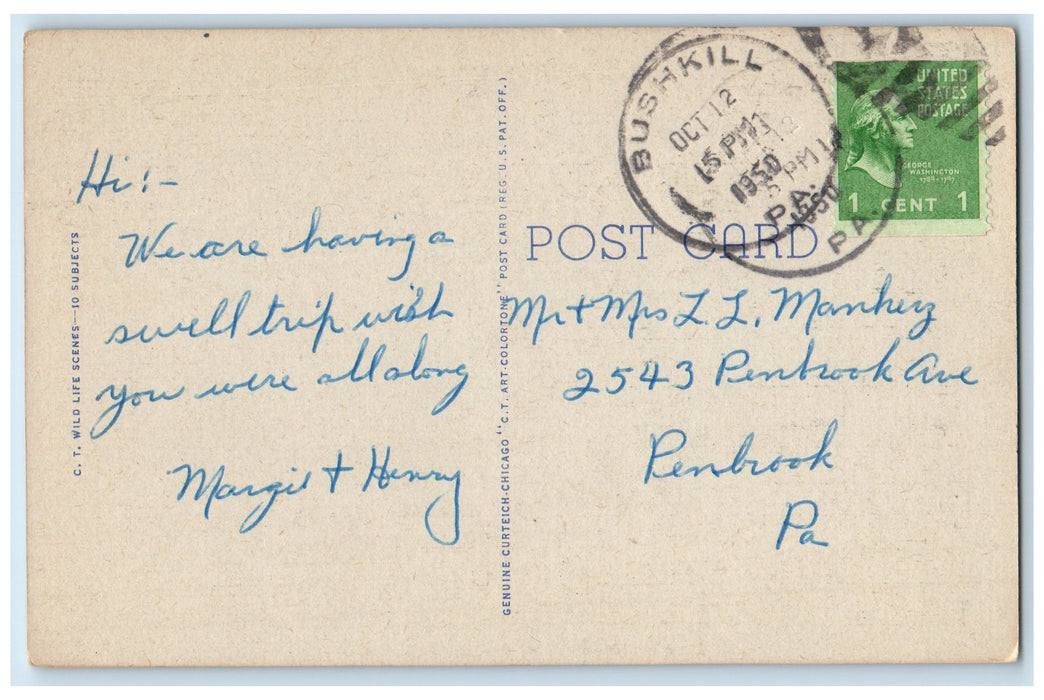 Hi:-
We are having a
swell trip wish
you were all along
Margie + Henry
C. T. WILD LIFE SCENES--10 SUBJECTS
GENUINE CURTEICH-CHICAGO "C. T. ART-COLORTONE" POST CARD (REG. U. S. PAT. OFF.)
POST CARD
BUSHKILL
OCT 12
5 PM
1950
PA.
12
5 PM
1950
PA.
UNITED
STATES
POSTAGE
GEORGE
WASHINGTON
1789-1797
1 CENT 1
Mr + Mrs L. L. Mankey
2543 Penbrook Ave
Penbrook
Pa